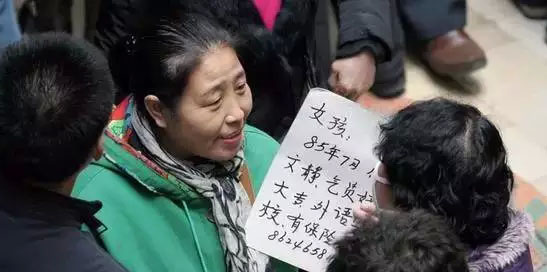 女孩:
85年7月
文静, 乞员
大专外语
校. 有保险
8624658